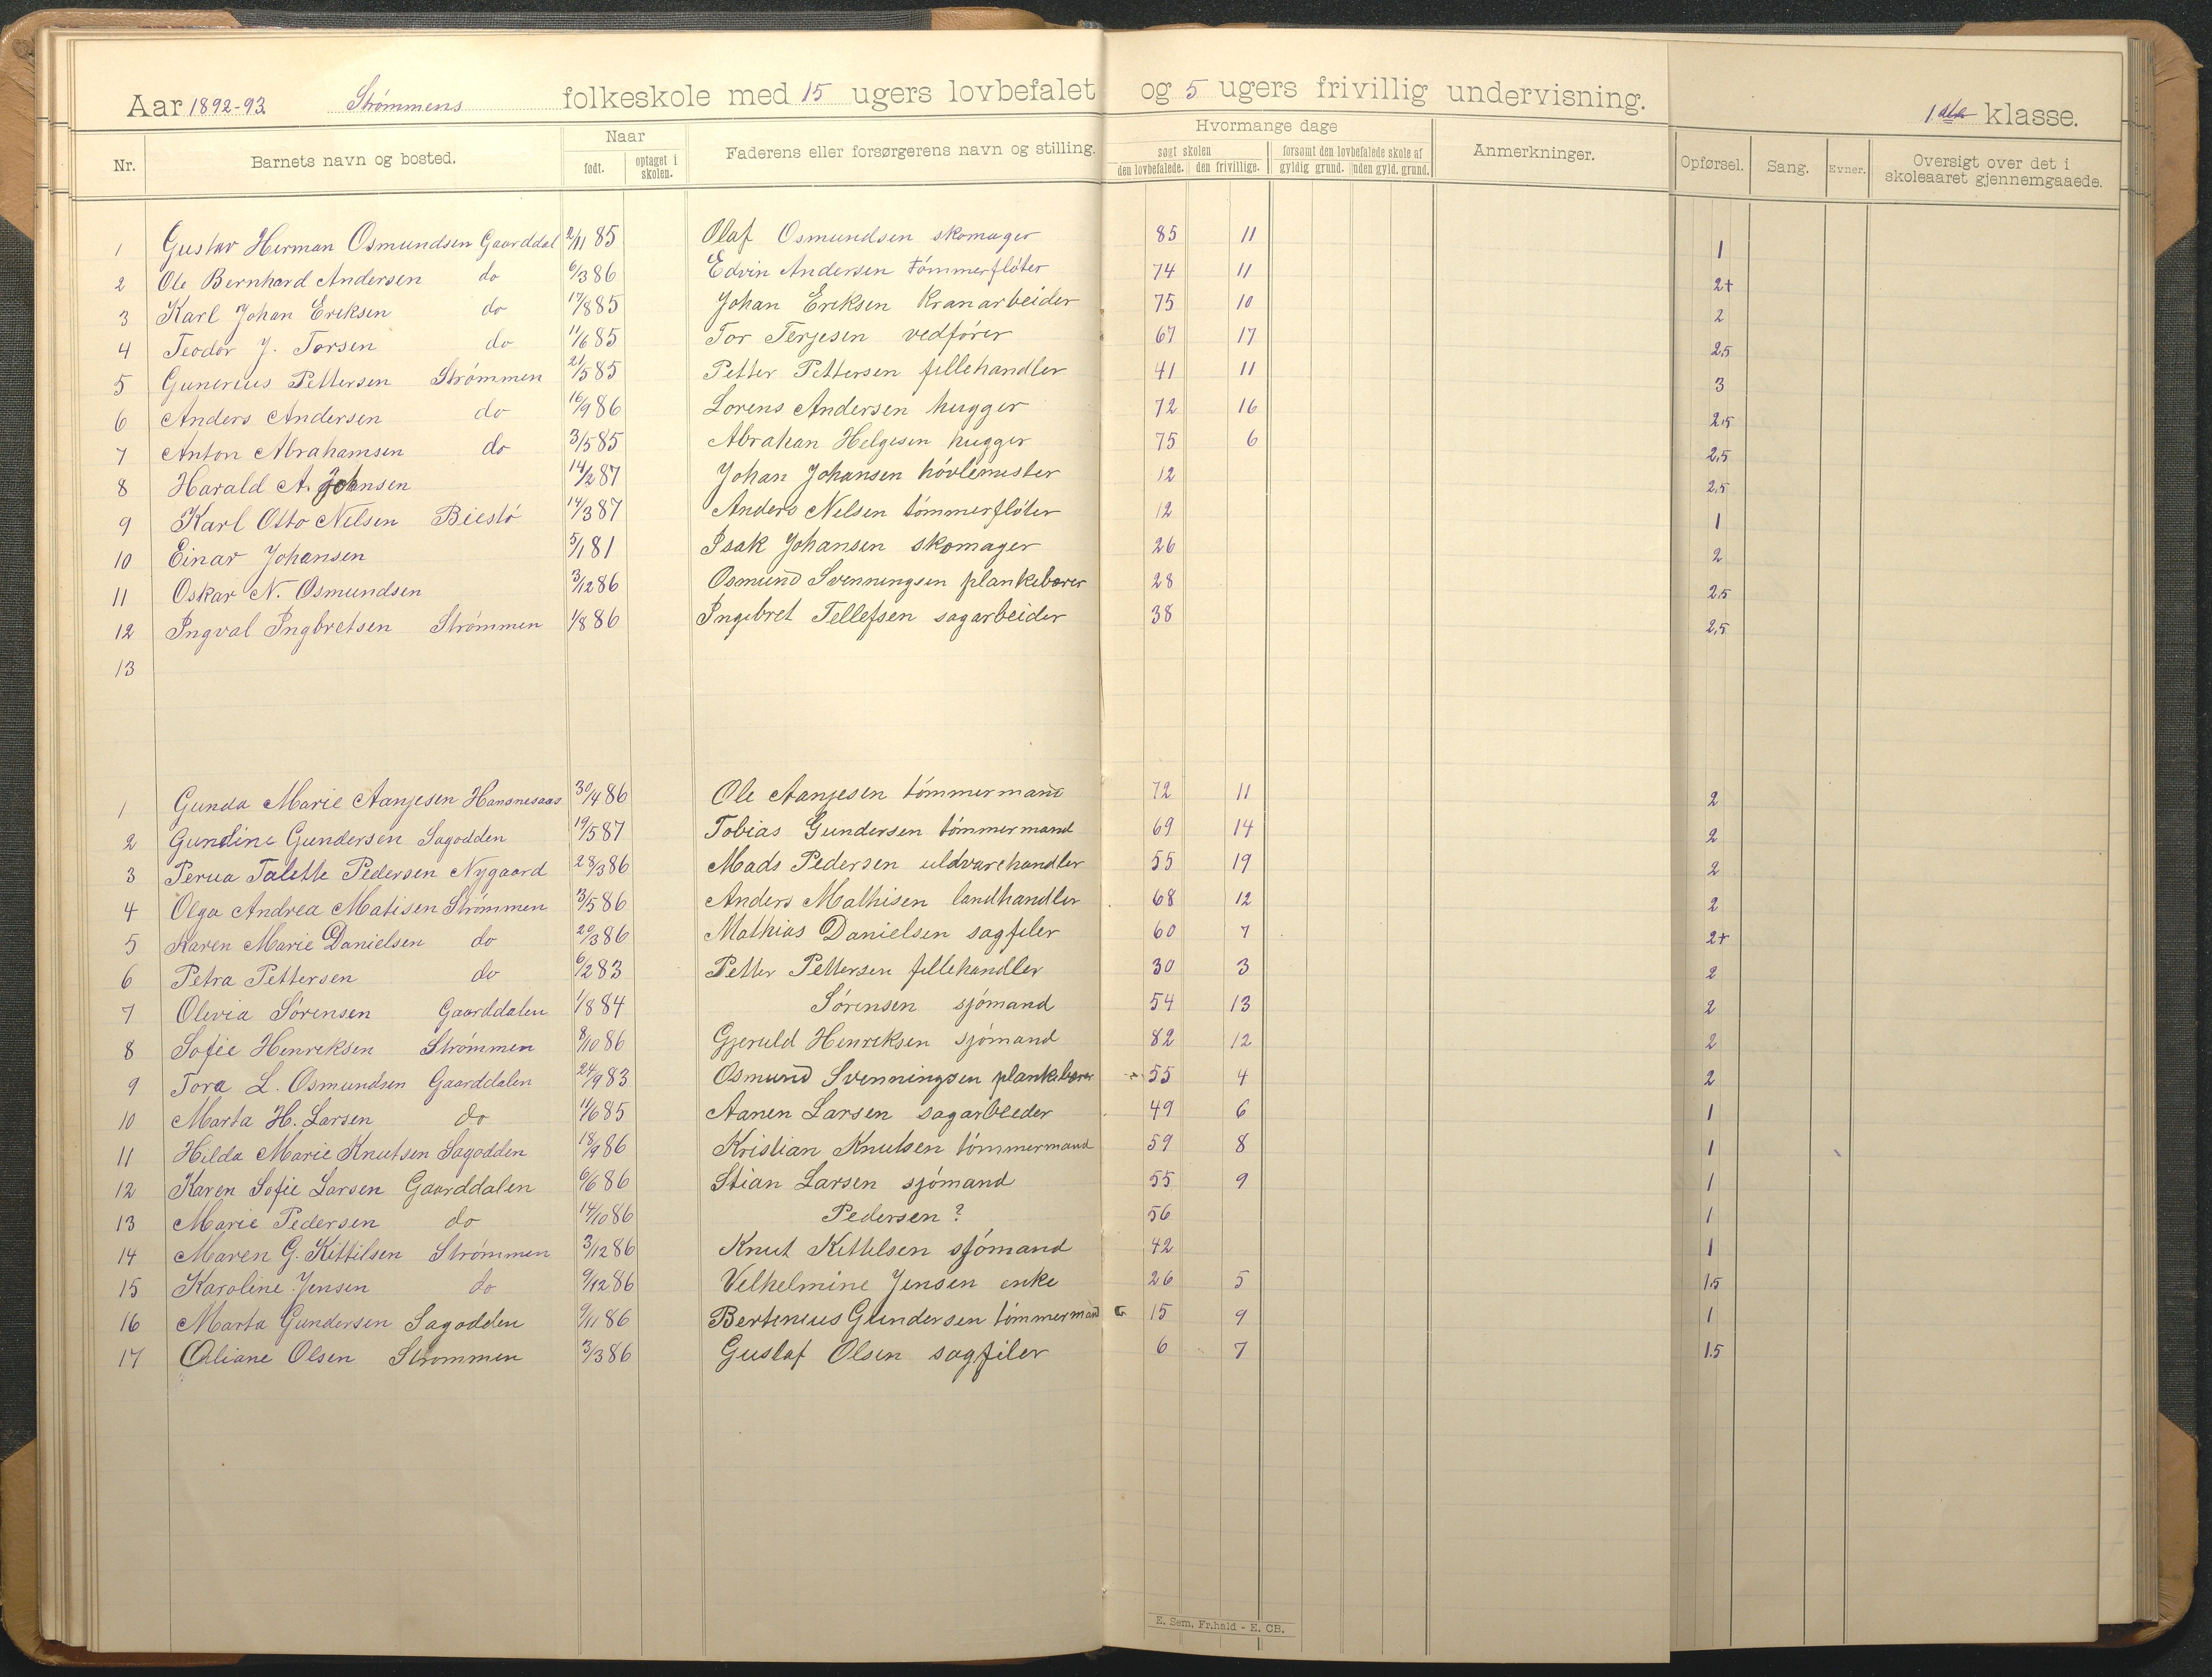 Aar 1892-93 Strømmens folkeskole med 15 ugers lovbefalet og 5 ugers frivillig undervisning. 1ste klasse.
Nr. Barnets navn og bosted. Naar født. optaget i skolen. Faderens eller forsørgerens navn og stilling. Hvormange dage søgt skolen den lovbefalede. den frivillige. forsømt den lovbefalede skole af gyldig grund. uden gyld. grund. Anmerkninger. Opførsel. Sang. Evner. Oversigt over det i skoleaaret gjennemgaaede.
1 Gustav Herman Osmundsen Gaarddal 2/11 85 Olaf Osmundsen skomager 85 11 1
2 Ole Bernhard Andersen do 6/3 86 Edvin Andersen tømmerfløter 74 11 2+
3 Karl Johan Eriksen do 17/8 85 Johan Eriksen Kranarbeider 75 10 2
4 Teodor J. Torsen do 11/6 85 Tor Terjesen vedfører 67 17 2,5
5 Gunerius Pettersen Strømmen 21/5 85 Petter Pettersen fillehandler 41 11 3
6 Anders Andersen do 16/9 86 Lorens Andersen hugger 72 16 2,5
7 Anton Abrahamsen do 3/5 85 Abrahan Helgesen hugger 75 6 2,5
8 Harald A. Johnsen 14/2 87 Johan Johansen høvlemester 12 2,5
9 Karl Otto Nilsen Biestø 14/3 87 Anders Nilsen tømmerfløter 12 1
10 Einar Johansen 5/1 81 Isak Johansen skomager 26 2
11 Oskar N. Osmundsen 3/12 86 Osmund Svenningsen plankebærer 28 2,5
12 Ingval Ingbretsen Strømmen 1/8 86 Ingebret Tellefsen sagarbeider 38 2,5
13
1 Gunda Marie Aanjesen Hansnesaas 30/4 86 Ole Aanjesen tømmermand 72 11 2
2 Gundine Gundersen Sagodden 19/5 87 Tobias Gundersen tømmermand 69 14 2
3 Talette Pedersen Nygaard 28/3 86 Mads Pedersen uldvarehandler 55 19 2
4 Olga Andrea Matisen Strømmen 3/5 86 Anders Mathisen landhandler 68 12 2
5 Karen Marie Danielsen do 20/3 86 Mathias Danielsen sagfiler 60 7 2+
6 Petra Pettersen do 6/2 83 Petter Pettersen fillehandler 30 3 2
7 Olivia Sørensen Gaarddalen 1/8 84 Sørensen sjømand 54 13 2
8 Sofie Henriksen Strømmen 8/10 86 Gjeruld Henriksen sjømand 82 12 2
9 Tora L. Osmundsen Gaarddalen 24/9 83 Osmund Svenningsen plankebærer 55 4 2
10 Marta H. Larsen do 11/6 85 Aanen Larsen sagarbeider 49 6 1
11 Hilda Marie Knutsen Sagodden 18/9 86 Kristian Knutsen tømmermand 59 8 1
12 Karen Sofie Larsen Gaarddalen 6/6 86 Stian Larsen sjømand 55 9 1
13 Marie Pedersen do 14/10 86 Pedersen ? 56 1
14 Maren G. Kittilsen Strømmen 3/12 86 Knut Kittilsen sjømand 42 1
15 Karoline Jensen do 9/12 86 Velhelmine Jensen enke 26 5 1.5
16 Marta Gundersen Sagodden 9/11 86 Bertinius Gundersen tømmermand 15 9 1
17 Olsen Strømmen 3/3 86 Gustaf Olsen sagfiler 6 7 1.5
E. Sem, Fr.hald - E. CB.